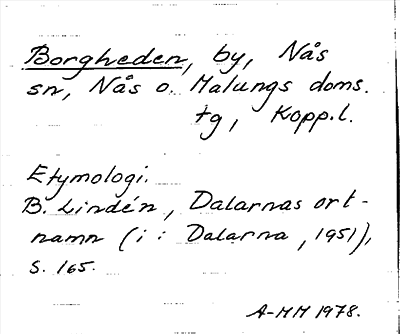 Borgheden, by, Nås
sn, Nås o. Malungs doms.
tg, Kopp.l.
Etymologi.
B. Lindén, Dalarnas ort-
namn (i: Dalarna, 1951),
s. 165.
A-MM 1978.